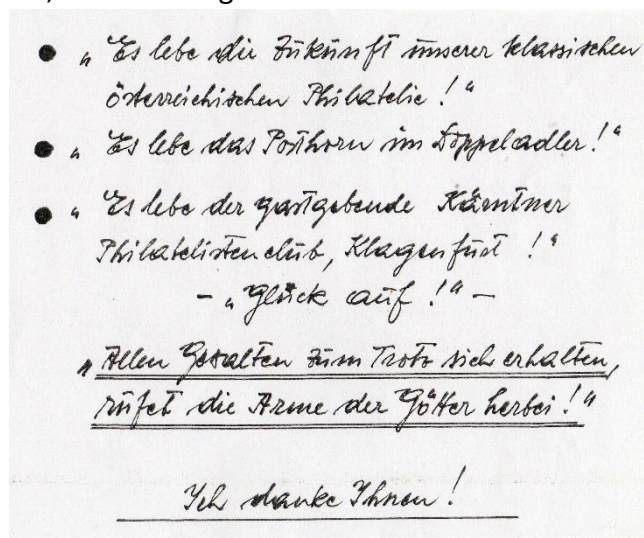 • „Es lebe die Zukunft unserer klassischen
österreichischen Philatelie!“
• „Es lebe das Posthorn im Doppeladler!“
• „Es lebe der gastgebende Kärntner
Philatelistenclub, Klagenfurt!“
– „Glück auf!“ –
„Allen Gewalten zum Trotz sich erhalten,
rufet die Arme der Götter herbei!“
Ich danke Ihnen!